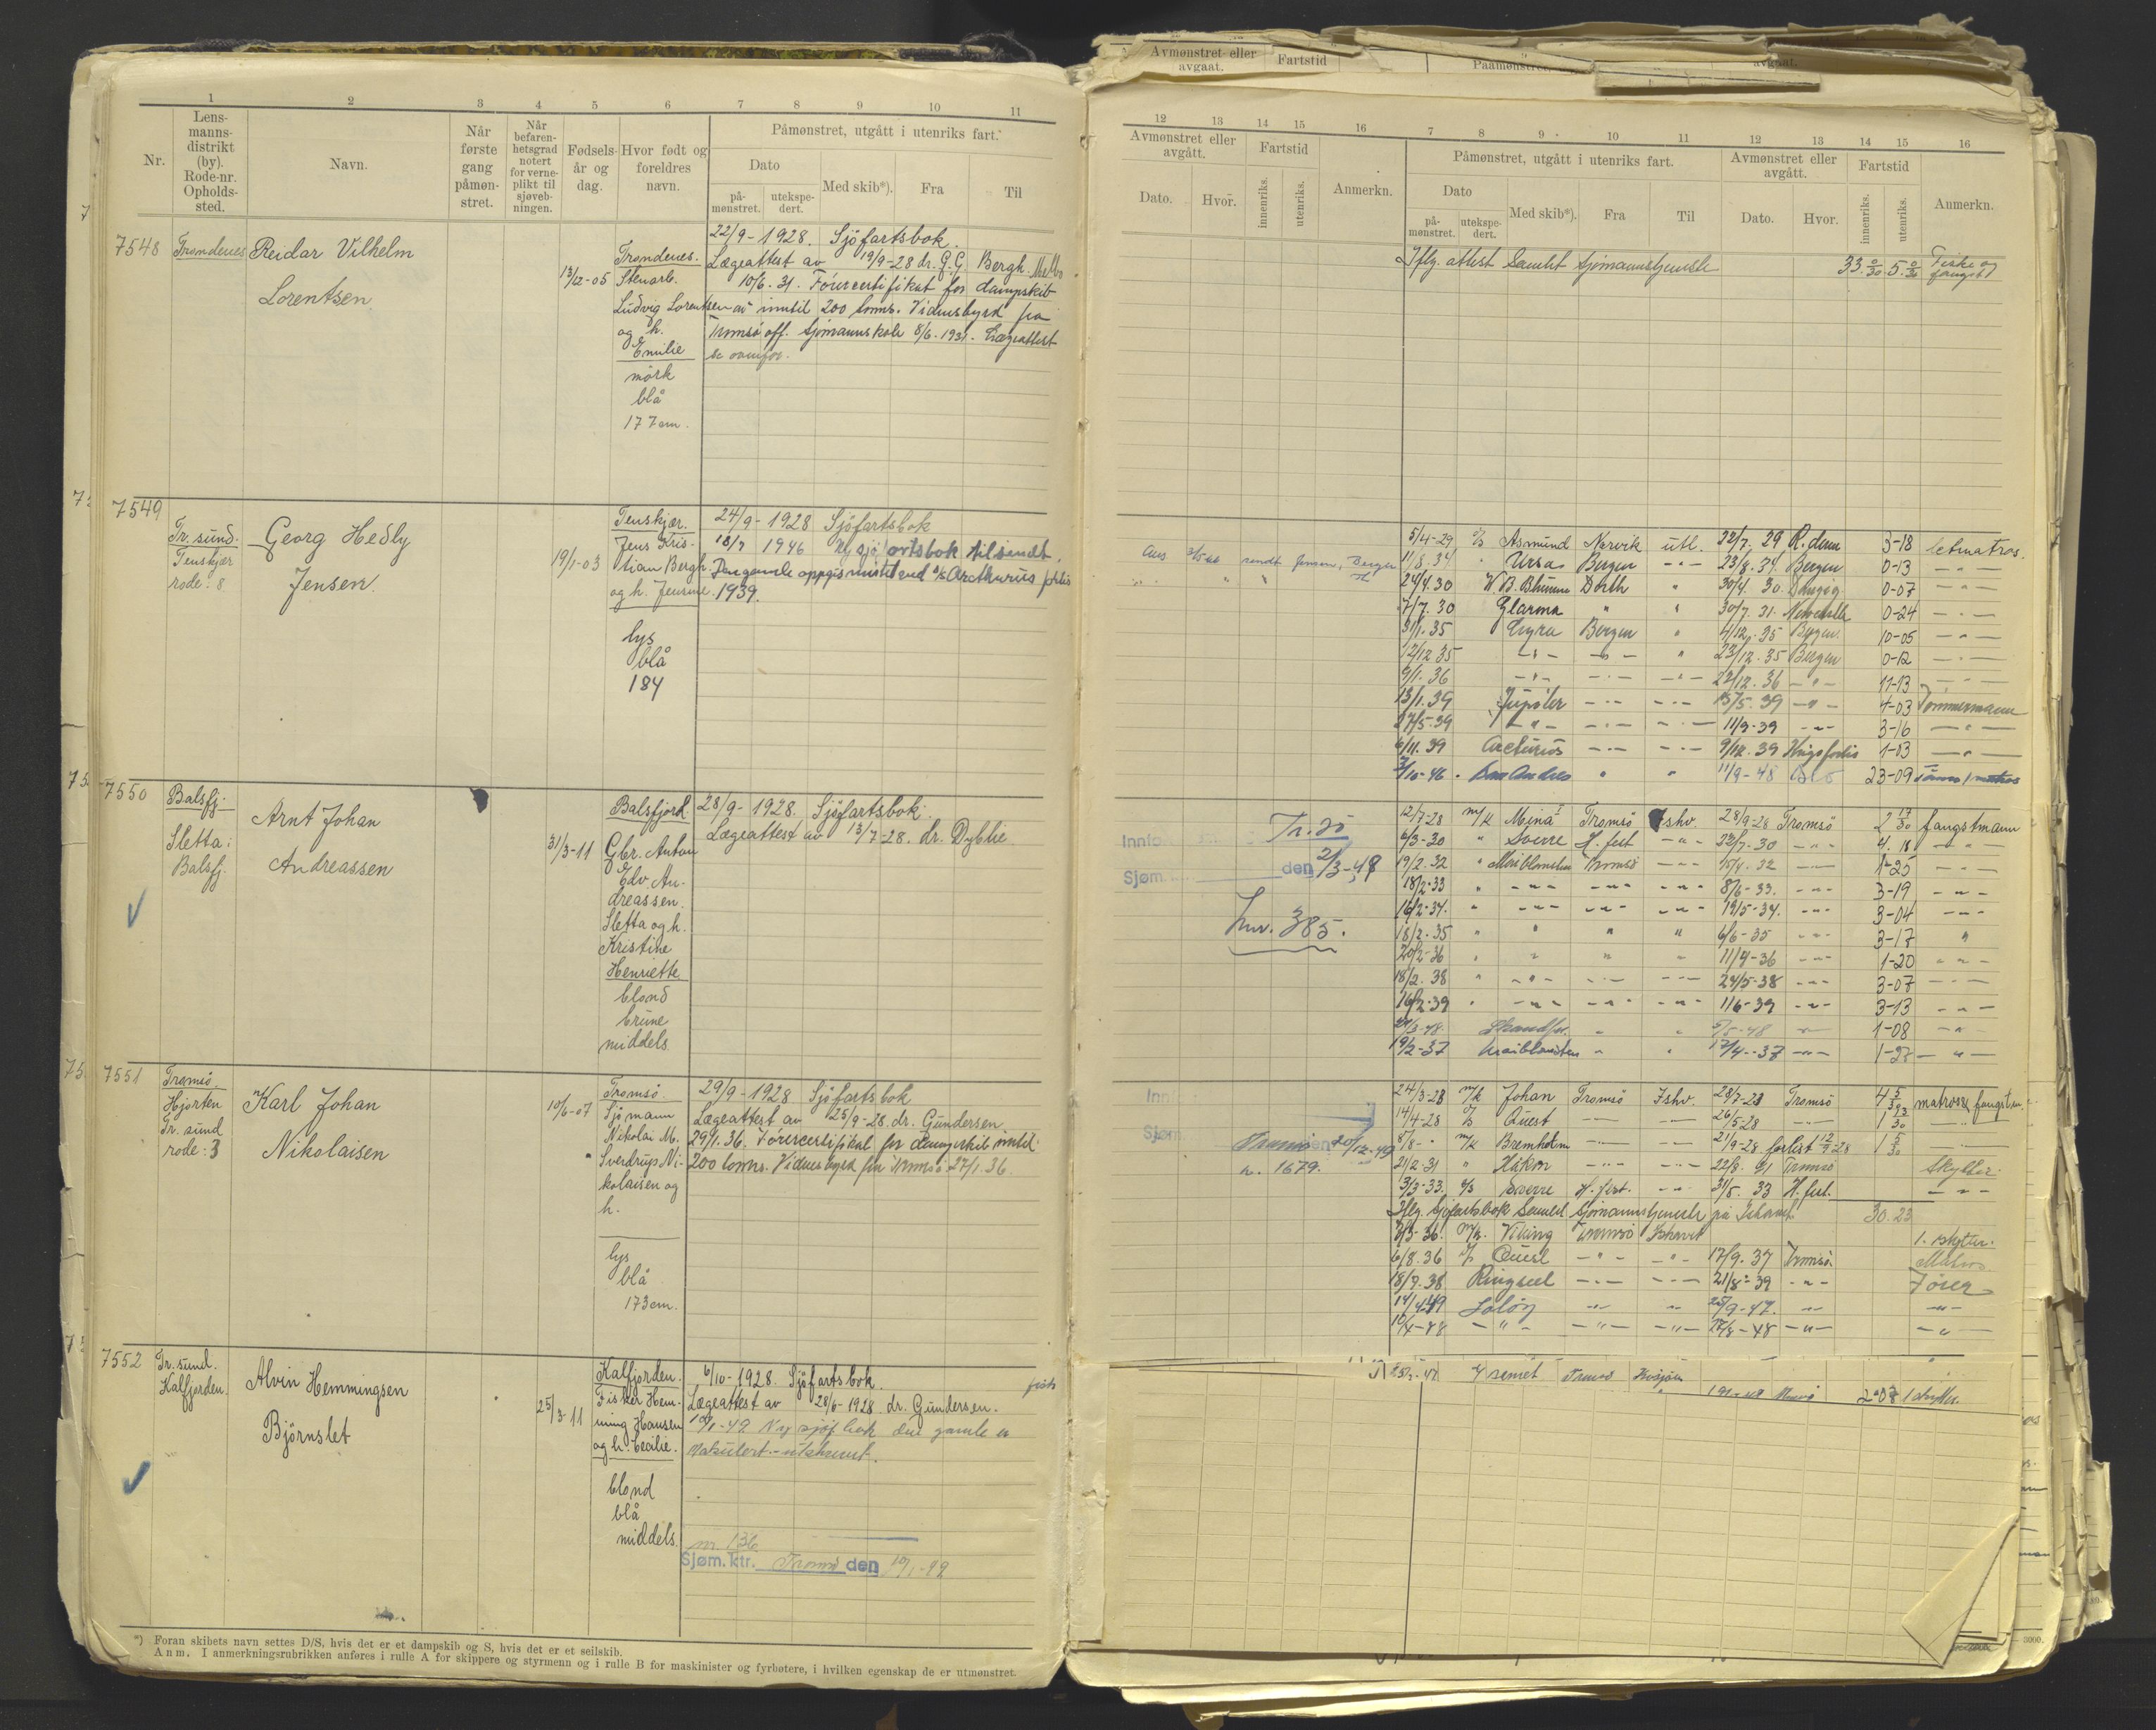 1 2 3 4 5 6 7 8 9 10 11
Nr.
Lens-
manns-
distrikt
(by).
Rode-nr.
Opholds-
sted.
Navn.
Når
første
gang
påmøn-
stret.
Når
befaren-
hetsgrad
notert
for verne-
plikt til
sjøveb-
ningen.
Fødsels-
år og
dag.
Hvor født og
foreldres
navn.
Påmønstret, utgått i utenriks fart.
Dato
på-
mønstret.
utekspe-
dert.
Med skib*).
Fra
Til
7548 Trondenes
Reidar Vilhelm
Lorentsen
13/12-05
Trondenes.
Stenarb.
Ludvig Lorentsen
og h.
Emilie
mörk
blå
177 cm.
22/9-1928. Sjöfartsbok.
Lægeattest av 19/9-28 dr. G.G. Bergh. Melbo
10/6.31. Förercertifikat for dampskib
inntil 200 tonns. Vidnesbyrd fra
Tromsö off. sjömannskole 8/6.1931. Lægeattest
se ovenfor.
7549
Tr.sund.
Tenskjær
rode: 8
Georg Hedly
Jensen.
19/1-03
Tenskjær.
Jens Kris-
tian Bergh.
og h. Jensine.
lys
blå
184
24/9-1928 Sjöfartsbok
18/7 1946 Ny sjöfartsbok tilsendt.
Den gamle oppgis mistet end s/s Arcthurus forlis
1939.
7550
Balsfj:
Sletta:
Balsfj.
Arnt Johan
Andreassen
31/3-11
Balsfjord.
Gbr. Anton
Edv. An-
dreassen.
Sletta og h.
Kristine
Henriette.
blond
brune
middels
28/9-1928. Sjöfartsbok.
Lægeattest av 13/7-28. dr. Dyblie
7551
Tromsö.
Hjorten
Tr. sund
rode: 3
Karl Johan
Nikolaisen
10/6-07
Tromsö.
Sjömann
Nikolai M.
Sverdrup Ni-
kolaisen og
h.
lys
blå
173 cm.
29/9-1928 Sjöfartsbok
Lægeattest av 25/9-28. dr. Gundersen.
29/1.36. Förercertifikat for dampskib inntil
200 tonns. Vidnesbyrd fra Tromsö 27/1.36.
7552
Tr.sund.
Kalfjorden.
Alvin Hemmingsen
Björnslet
25/3-11
Kalfjorden.
Fisker Hem-
ming Hansen
og h. Cecilie.
blond
blå
middels.
6/10-1928. Sjöfartsbok.
Lægeattest av 28/6-1928 dr. Gundersen.
10/1-49 Ny sjöf.bok den gamle er
makulert.
nr. 136
Sjøm.ktr. Tromsö den 10/1-49
*) Foran skibets navn settes D/S, hvis det er et dampskib og S, hvis det er et seilskib.
Anm. I anmerkningsrubrikken anføres i rulle A for skippere og styrmenn og i rulle B for maskinister og fyrbøtere, i hvilken egenskap de er utmønstret.
Avmønstret eller
avgaat.
Fartstid
12 13 14 15 16 7 8 9 10 11 12 13 14 15 16
Avmønstret eller
avgått.
Dato.
Hvor.
Fartstid
innenriks.
utenriks.
Anmerkn.
Påmønstret, utgått i utenriks fart.
Dato
på-
mønstret.
utekspe-
dert.
Med skib*).
Fra
Til
Avmønstret eller
avgått.
Dato.
Hvor.
Fartstid
innenriks.
utenriks.
Anmerkn.
Iflg. attest Samlet sjömannstjeneste 33 0/30 5 0/30 Fiske og
fangst
5/4-29 Asmund Narvik utl. 22/7.29 R.dam 3-18 letmatros.
11/8.34 Ursa Bergen -"- 23/8.34 Bergen 0-13 -"-
24/4.30 30/4.30 Danzig 0-07 -"-
7/7.30 Glarma " " 30/7.31 Newcastle 0-24 -"-
31/1.35 Lyra Bergen " 4/12.35 Bergen 10-05 -"-
12/12 35 -"- -"- " 23/12.35 Bergen 0-12 -"-
9/1.36 -"- -"- -"- 22/12.36 -"- 11-13 -"-
13/1.39 Jupiter -"- -"- 15/5.39 -"- 4-03 Tömmermann
27/5.39 -"- -"- -"- 11/9-39 -"- 3-16 -"-
6/11.39 Arcturus -"- -"- 9/12.39 1-03 -"-
2/10-46 San Andres " " 11/9-48 Oslo 23-09
Tr.sö
den 2/3-49
Sjøm.
Lnr. 385.
12/7-28 m/k Mina I Tromsö Ishv. 28/9-28 Tromsö 2 17/30 fangstmann
6/3-30 " Sverre H.fest -"- 23/7-30 -"- 4.18 -"-
19/2.32 " Maiblomsten Tromsö -"- 15/4.32 -"- 1-25 -"-
18/2-33 " -"- -"- -"- 8/6-33. -"- 3-19 -"-
16/2-34. " -"- -"- -"- 19/5-34. -"- 3-04 -"-
18/2.35 " " " " 6/6-35 -"- 3-17 "
20/2-36 " " " " 11/4-36 -"- 1-20 -"-
18/2.38 " -"- -"- -"- 24/5-38 -"- 3-07 -"-
16/2-39 " -"- -"- -"- 1/6-39 -"- 3-13 -"-
24/3-48. " " 5/5-48 -"- 1-08 -"-
19/2-37 Maiblomsten " " 17/4-37 -"- 1-28 -"-
Sjøm.
Tromsö den 20/12-49
nr. 1679.
24/3-28 m/k Johan Tromsö Ishv. 28/7-28 Tromsö 4 5/30 matros & fangstm.
14/4-28 Quest -"- 26/5-28 -"- 1 13/30 -"-
8/8- " m/k Bremholm -"- -"- 21/9-28 forlist 12/9-28 1 5/30 -"-
21/2.31 " Håkon -"- -"- 22/8.31 Tromsö Skytter.
3/3-33. s/s Sverre H.fest. -"- 31/5.33 H.fest. -"-
Iflg. sjöfartsbok Samlet sjömannstjeneste på Ishavet. 30.23
2/3-36. m/k. Viking Tromsö Ishavet 1. skytter.
6/8.36 Quest -"- -"- 17/9.37 Tromsö. Matros
18/7.38 Ringsel -"- -"- 21/8-39 -"- Förer
14/4-49 -"- -"- 25/9-47. -"- -"-
10/4-48 -"- -"- -"- 27/8-48 -"- -"-
Tromsö 2-08